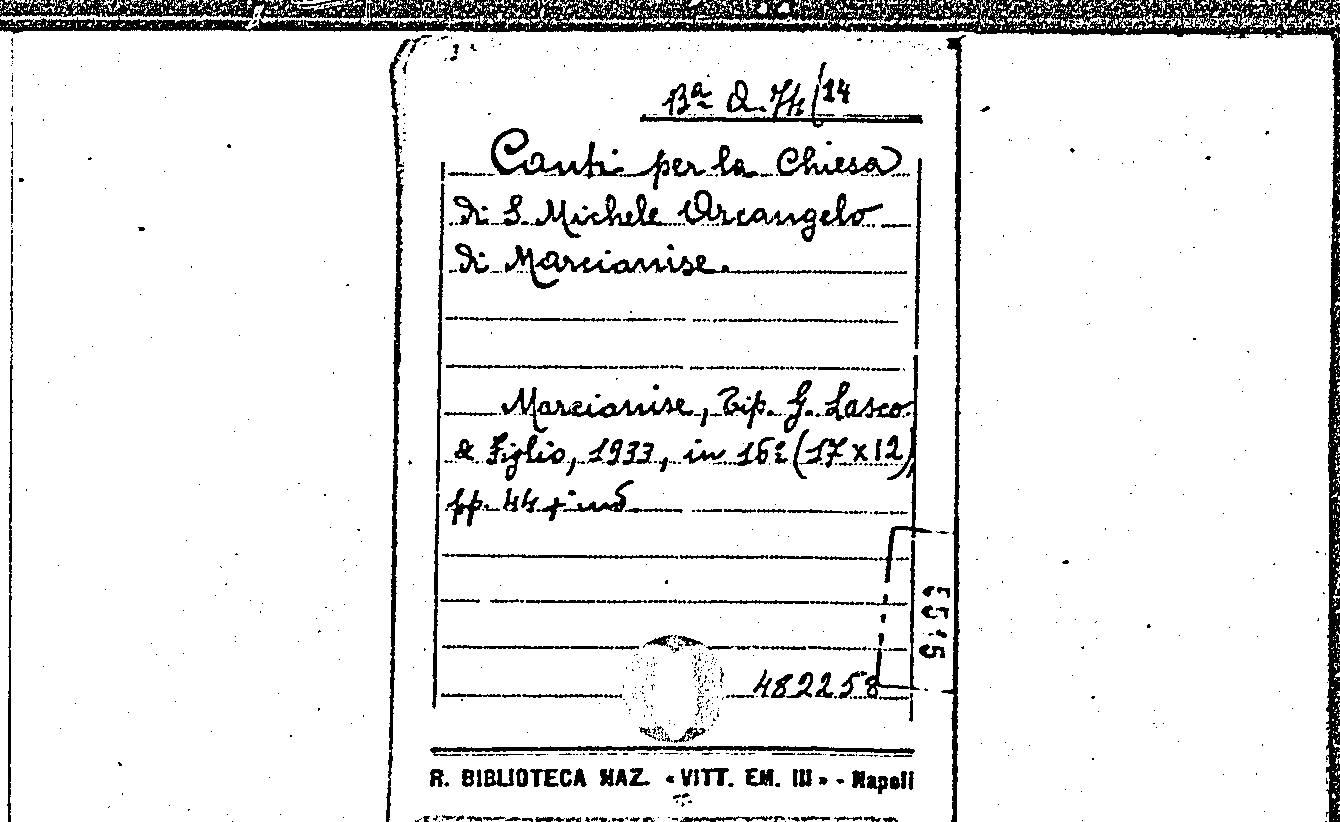 Bª Q. 74/14
Canti per la Chiesa
di S. Michele Arcangelo
di Marcianise.
Marcianise, Tip. G. Lasco
& Figlio, 1933, in 16º (17 x 12)
pp. 44 +
482258
R. BIBLIOTECA NAZ. «VITT. EM. III» - Napoli